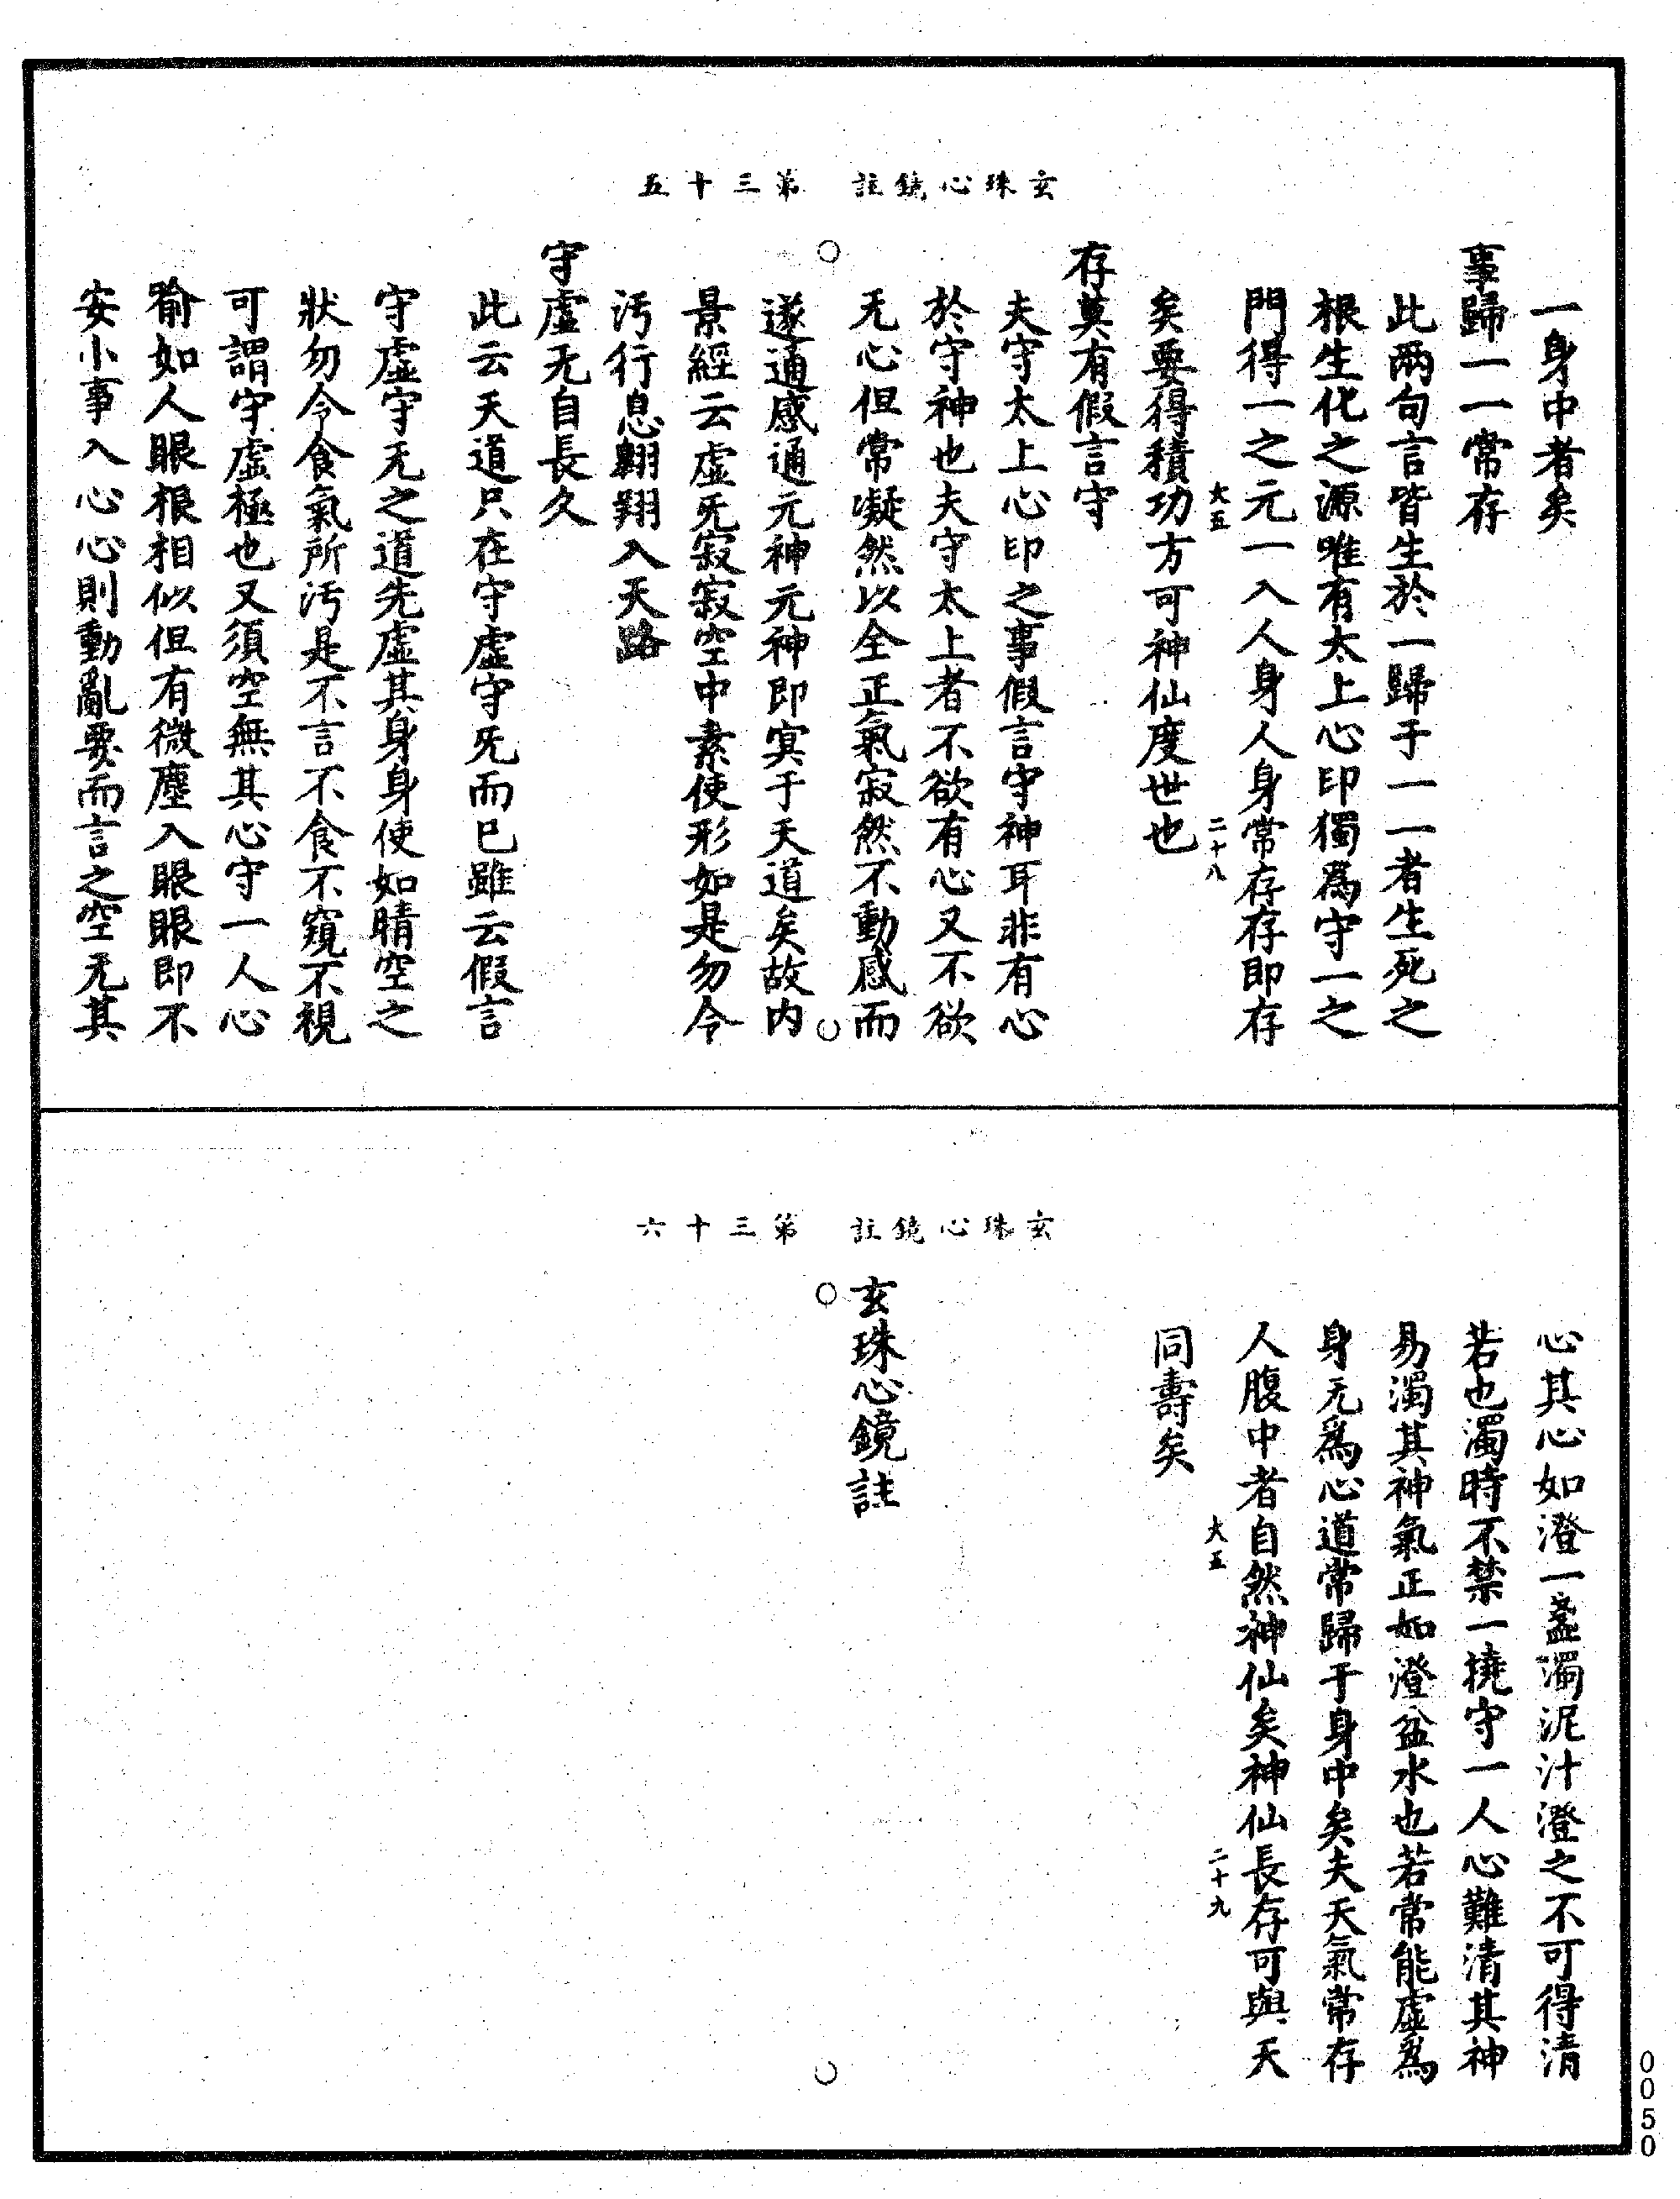 玄珠心鏡註　第三十五
一身中者矣
事歸一一常存
此兩句言皆生於一歸于一一者生死之
根生化之源唯有太上心印獨爲守一之
門得一之元一入人身人身常存存即存
大五　二十八
矣要得積功方可神仙度世也
存莫有假言守
夫守太上心印之事假言守神耳非有心
於守神也夫守太上者不欲有心又不欲
无心但常凝然以全正氣寂然不動感而
遂通感通元神元神即冥于天道矣故内
景經云虛无寂寂空中素使形如是勿令
汚行息翱翔入天路
守虛无自長久
此云天道只在守虛守无而已雖云假言
守虛守无之道先虛其身身使如晴空之
狀勿令食氣所汚是不言不食不窺不視
可謂守虛極也又須空無其心守一人心
喻如人眼根相似但有微塵入眼眼即不
安小事入心心則動亂要而言之空无其
玄珠心鏡註　第三十六
心其心如澄一盞濁泥汁澄之不可得清
若也濁時不禁一撓守一人心難清其神
易濁其神氣正如澄盆水也若常能虛爲
身无爲心道常歸于身中矣夫天氣常存
人腹中者自然神仙矣神仙長存可與天
大五　二十九
同壽矣
玄珠心鏡註
0050